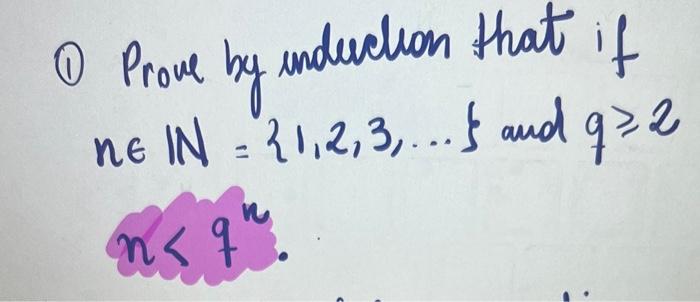 ① Prove by induction that if
n ∈ ℕ = {1, 2, 3, ...} and q ≥ 2
n < qⁿ.